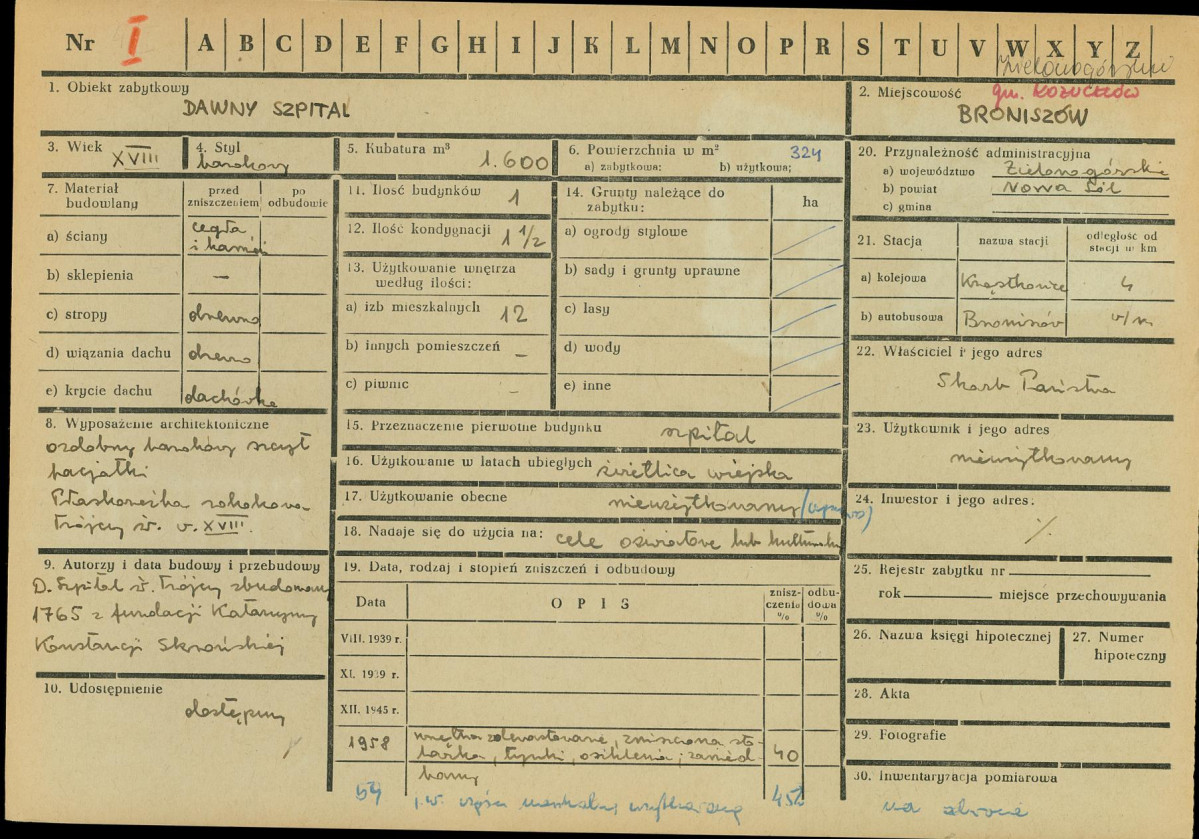 Nr I A B C D E F G H I J K L M N O P R S T U V W X Y Z
1. Obiekt zabytkowy
DAWNY SZPITAL
2. Miejscowość gm. KOŻUCHÓW
BRONISZÓW
3. Wiek XVIII
4. Styl
barokowy
5. Kubatura m³ 1.600
6. Powierzchnia w m² 324
a) zabytkowa: b) użytkowa;
7. Materiał budowlany
przed zniszczeniem
po odbudowie
a) ściany cegła
i kamień
b) sklepienia —
c) stropy drewno
d) wiązania dachu drewno
e) krycie dachu dachówka
8. Wyposażenie architektoniczne
ozdobny barokowy szczyt
facjatki
Płaskorzeźba rokokowa
Trójcy św. w. XVIII.
9. Autorzy i data budowy i przebudowy
D. Szpital św. Trójcy zbudowany
1765 z fundacji Katarzyny
Konstancji Skrońskiej
10. Udostępnienie
dostępny
11. Ilość budynków 1
12. Ilość kondygnacji 1 1/2
13. Użytkowanie wnętrza
według ilości:
a) izb mieszkalnych 12
b) innych pomieszczeń –
c) piwnic –
14. Grunty należące do
zabytku:
ha
a) ogrody stylowe
b) sady i grunty uprawne
c) lasy
d) wody
e) inne
15. Przeznaczenie pierwotne budynku szpital
16. Użytkowanie w latach ubiegłych świetlica wiejska
17. Użytkowanie obecne nieużytkowany
18. Nadaje się do użycia na: cele oświatowe lub kulturalne
19. Data, rodzaj i stopień zniszczeń i odbudowy
Data
OPIS
znisz-
czenia
%
odbu-
dowa
%
VIII. 1939 r.
XI. 1939 r.
XII. 1945 r.
1958 wnętrza zdewastowane, zniszczona sto-
larka, tynki, oszklenia; zanied-
bany
40
59 j.w. części mieszkalnej 45%
20. Przynależność administracyjna
a) województwo Zielonogórskie
b) powiat Nowa Sól
c) gmina
21. Stacja
nazwa stacji
odległość od
stacji w km
a) kolejowa 4
b) autobusowa Broniszów w/m
22. Właściciel i jego adres
Skarb Państwa
23. Użytkownik i jego adres
nieużytkowany
24. Inwestor i jego adres:
25. Rejestr zabytku nr
rok miejsce przechowywania
26. Nazwa księgi hipotecznej
27. Numer
hipoteczny
28. Akta
29. Fotografie
30. Inwentaryzacja pomiarowa
na obrocie